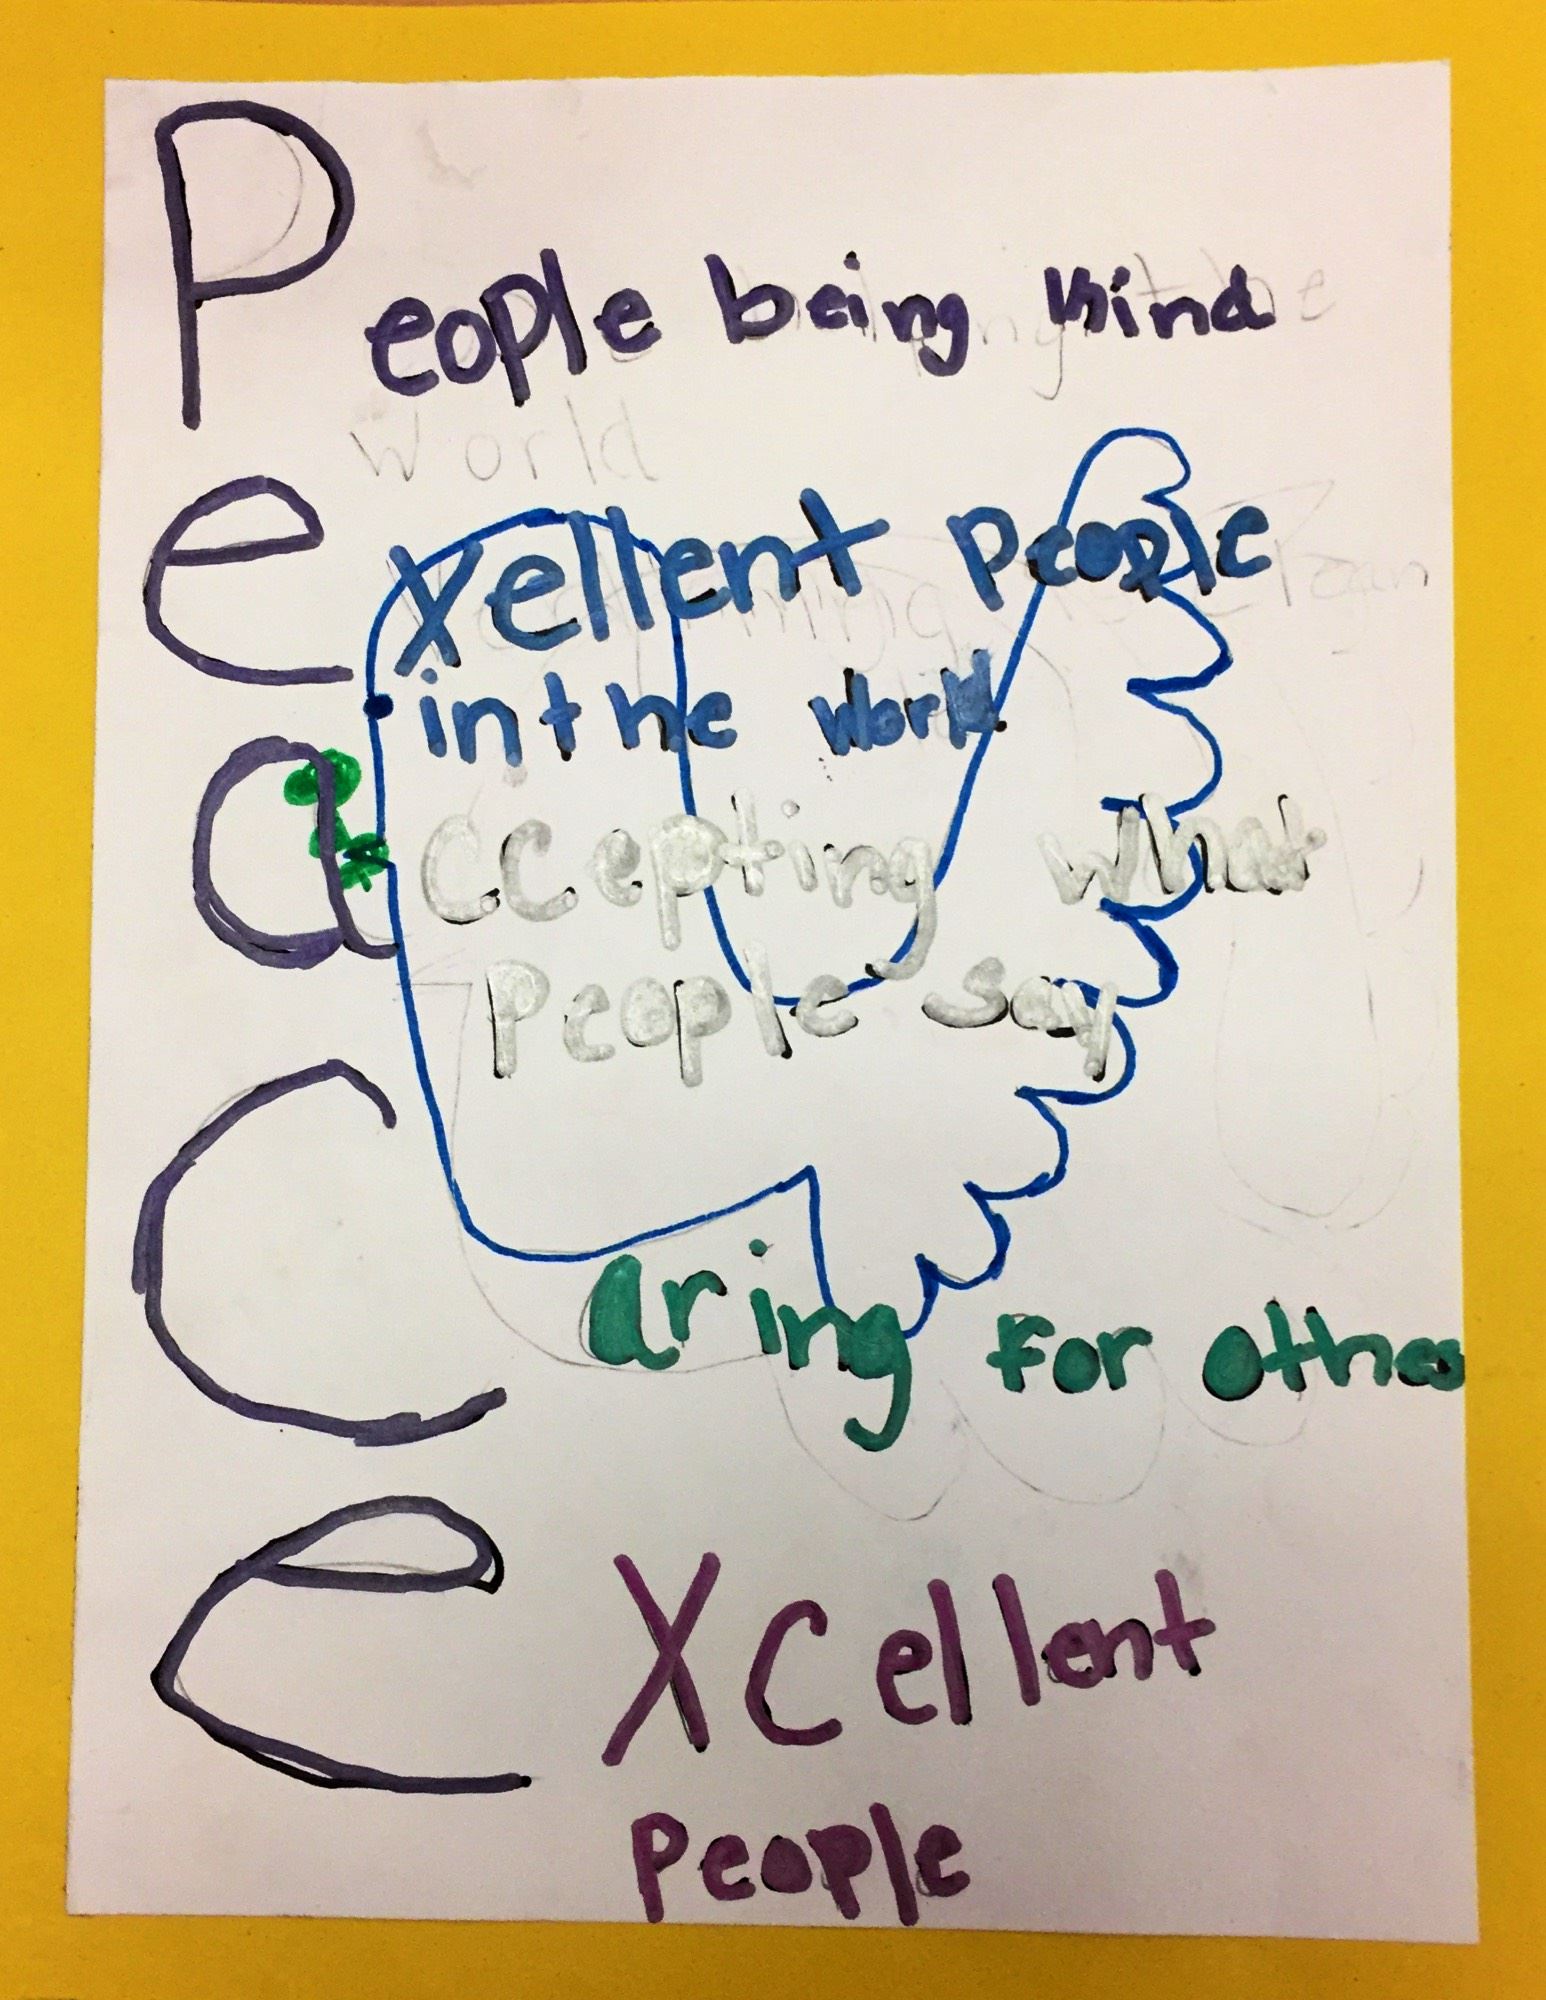 People being kind
World
exellent people
in the world
accepting what
People say
Caring for othes
eXcellent
People